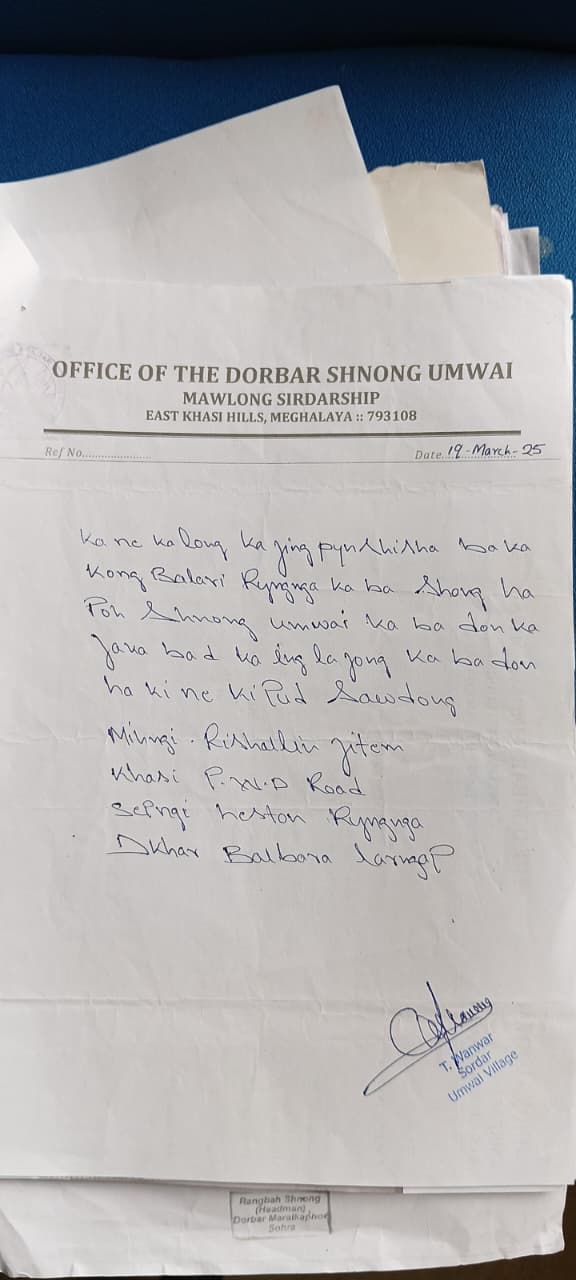 OFFICE OF THE DORBAR SHNONG UMWAI
MAWLONG SIRDARSHIP
EAST KHASI HILLS, MEGHALAYA :: 793108
Ref No.....................
Date. 19-March-25
Ka ne ka long ka jing pynshisha ba ka
Kong Balari Ryngnga ka ba Shong ha
Poh Shnong umwai ka ba don ka
Jaka bad ka ïng lajong ka ba don
ha ki ne ki Pud Sawdong
Mihngi . Rishallin Jitem
Khasi P.W.D Road
Sepngi heston Rynguga
Dkhar Balbora
T. Wanwar
Sordar
Umwai Village
Rangbah Shnong
(Headman)
Dorbar
Sohra